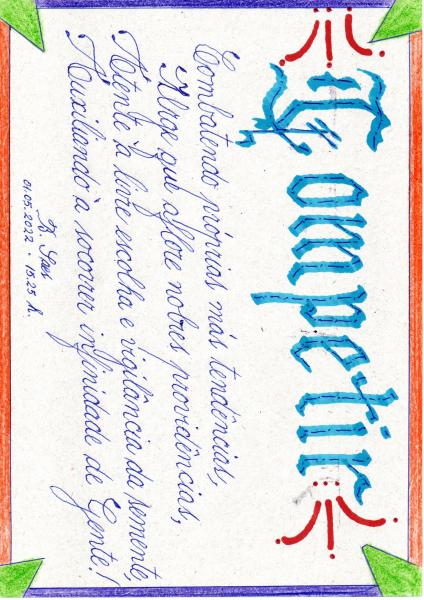 Competir
Combatendo próprias más tendências,
Urge que aflore nobres providências,
Atente à livre escolha e vigilância da semente,
Auxiliando a socorrer infinidade de Gente!
01.05.2022 - 15:25 h.